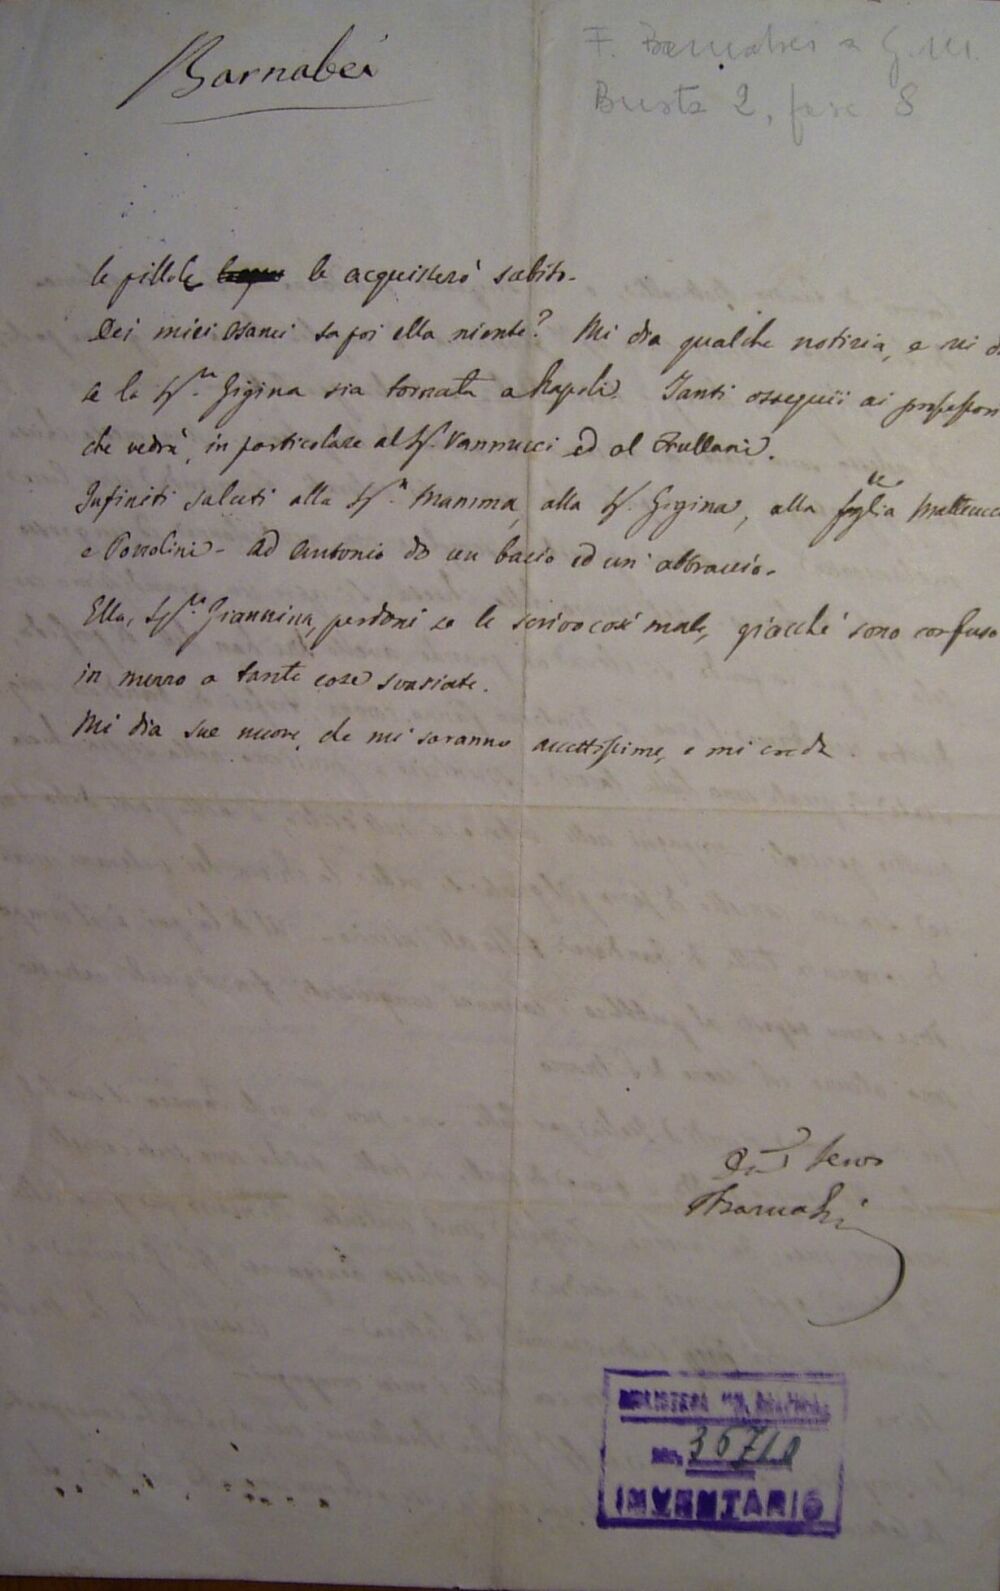 Barnabei
F. Barnabei a G. M.
Busta 2, fasc 8
le pillole le acquisterò subito.
Dei miei Osanei sa poi ella niente? Mi dia qualche notizia, e mi
se la Sig.ra Gigina sia tornata a Napoli. Tanti ossequii ai professori
che vedrà, in particolare al Sig. Vannucci ed al Trullani.
Infiniti saluti alla Sig.a Mamma, alla S. Gigina, alla famiglia Matteucci
e Pozzolini. Ad Antonio do un bacio ed un' abbraccio.
Ella, Sig.ra Giannina, perdoni se le scrivo così male, giacché sono confuso
in mezzo a tante cose svariate.
Mi dia sue nuove, che mi saranno accettissime, e mi creda.
servo
FBarnabei
BIBLIOTECA
36710
INVENTARIO